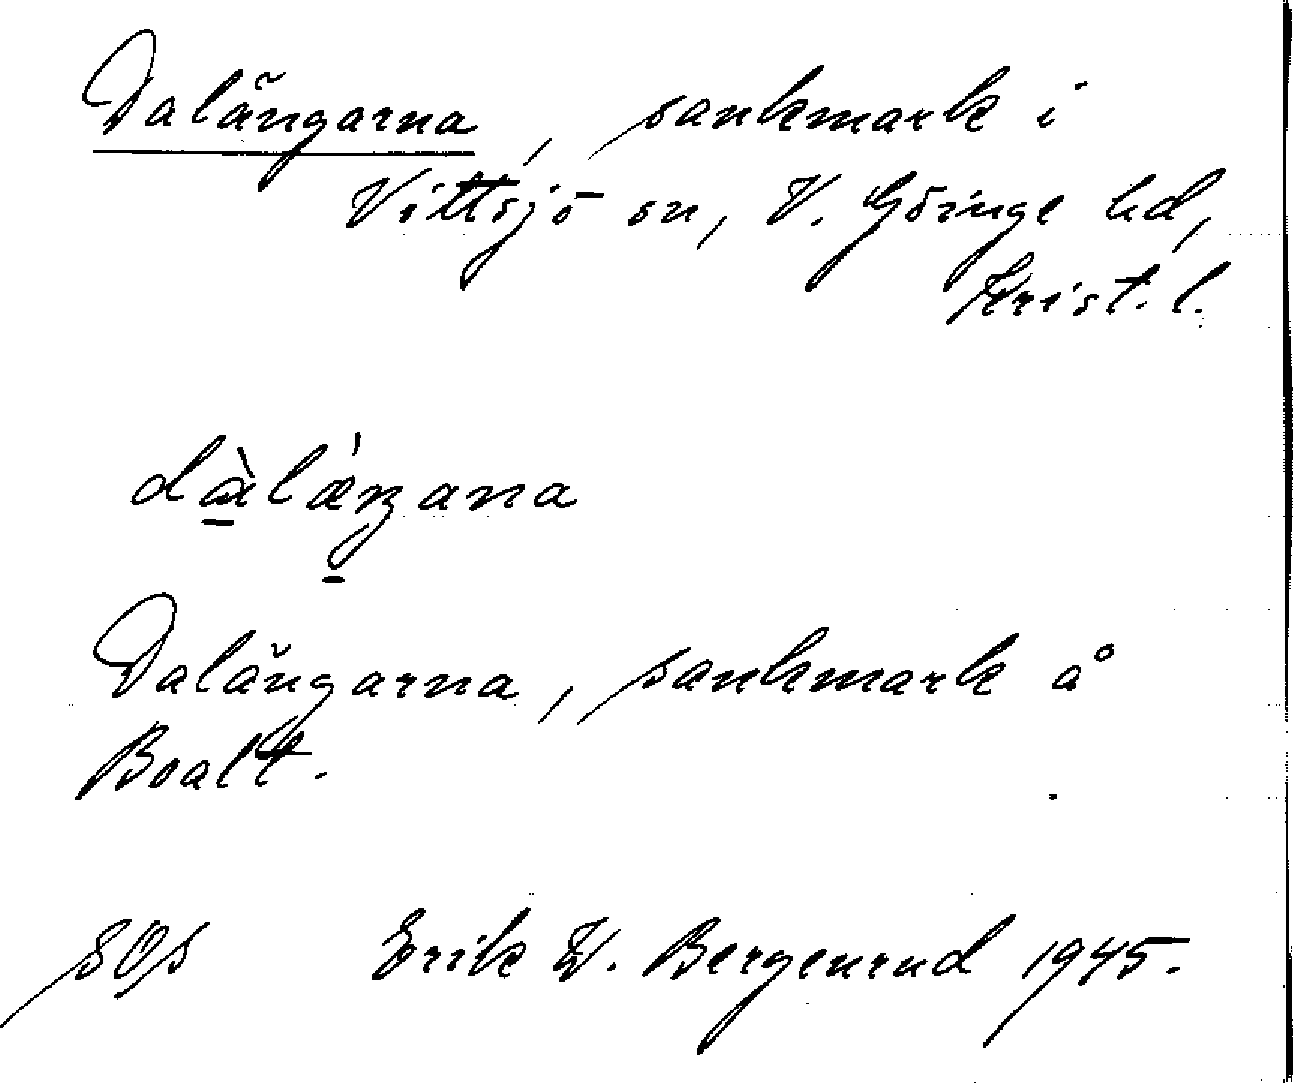 Dalängarna, sankmark i
Vittsjö sn, V. Göinge hd,
Krist. l.
Dalängarna, sankmark å
Boalt.
Erik W. Bergenrud 1945.